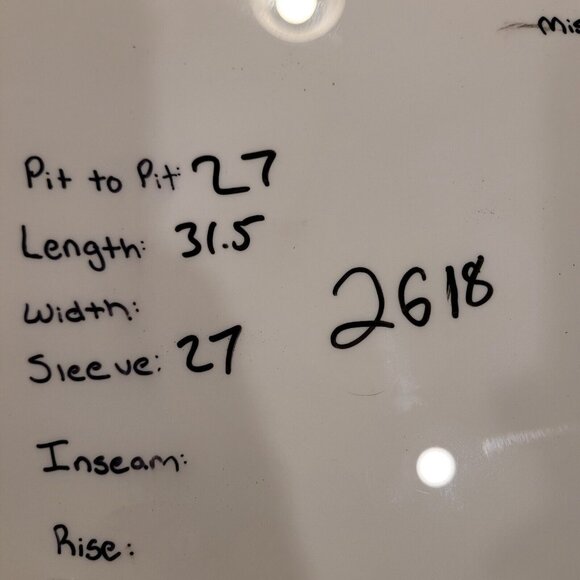 Pit to Pit: 27
Length: 31.5
Width:
Sleeve: 27
2618
Inseam:
Rise: